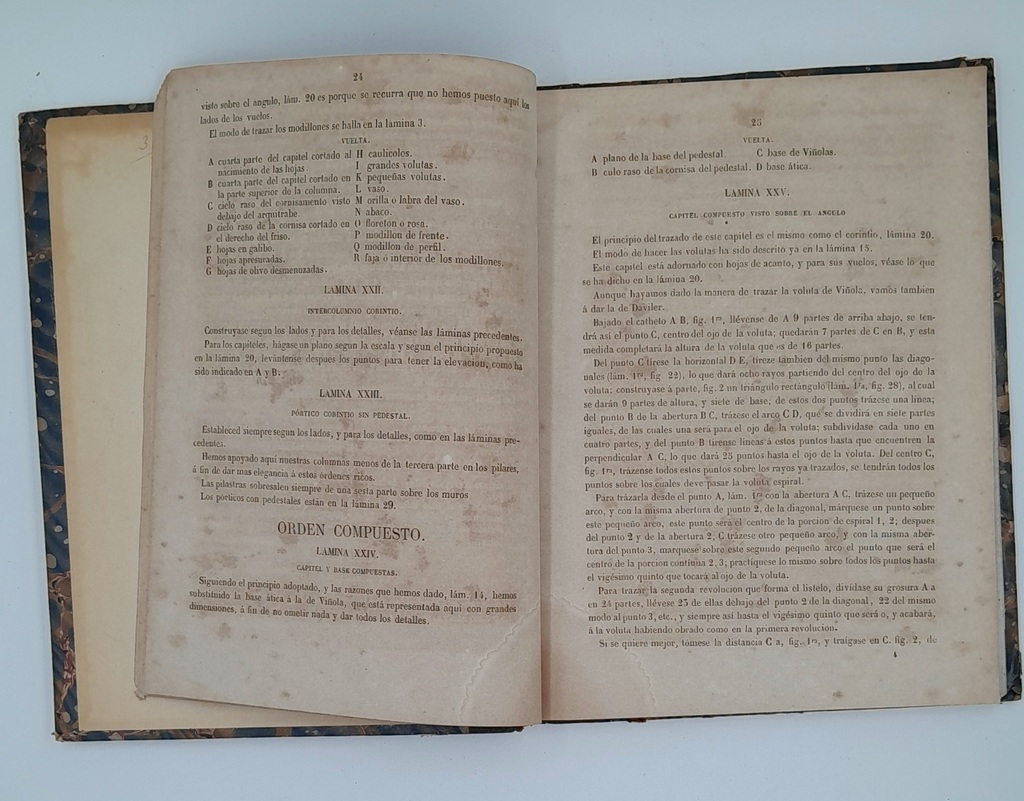 24
visto sobre el angulo, lám. 20 es porque se recurra que no hemos puesto aquí los
lados de los vuelos.
El modo de trazar los modillones se halla en la lámina 3.
VUELTA.
A cuarta parte del capitel cortado al
nacimiento de las hojas.
B cuarta parte del capitel cortado en
la parte superior de la columna.
C cielo raso del cornisamento visto
debajo del arquitrabe
D cielo raso de la cornisa cortado en
el derecho del friso.
E hojas en galibo.
F hojas apresuradas.
G hojas de olivo desmenuzadas.
H caulicolos.
I grandes volutas.
K pequeñas volutas.
L vaso.
M orilla o labra del vaso.
N abaco.
O floreton o rosa.
P modillon de frente.
Q modillon de perfil.
R faja ó interior de los modillones.
LAMINA XXII.
INTERCOLUMNIO CORINTIO.
Construyase segun los lados y para los detalles, véanse las láminas precedentes.
Para los capiteles, hágase un plano segun la escala y segun el principio propuesto
en la lámina 20, levántense despues los puntos para tener la elevacion, como ha
sido indicado en A y B.
LAMINA XXIII.
PÓRTICO CORINTIO SIN PEDESTAL.
Estableced siempre segun los lados, y para los detalles, como en las láminas pre-
cedentes.
Hemos apoyado aquí nuestras columnas menos de la tercera parte en los pilares,
á fin de dar mas elegancia á estos órdenes ricos.
Las pilastras sobresalen siempre de una sesta parte sobre los muros
Los pórticos con pedestales están en la lámina 29.
ORDEN COMPUESTO.
LAMINA XXIV.
CAPITEL Y BASE COMPUESTAS.
Siguiendo el principio adoptado, y las razones que hemos dado, lám. 14, hemos
substituido la base ática á la de Viñola, que está representada aqui con grandes
dimensiones, á fin de no ometir nada y dar todos los detalles.
25
VUELTA.
A plano de la base del pedestal. C base de Viñolas.
B culo raso de la cornisa del pedestal. D base ática.
LAMINA XXV.
CAPITEL COMPUESTO VISTO SOBRE EL ANGULO
El principio del trazado de este capitel es el mismo como el corintio, lámina 20.
El modo de hacer las volutas ha sido descrito ya en la lámina 15.
Este capitel está adornado con hojas de acanto, y para sus vuelos, véase lo que
se ha dicho en la lámina 20.
Aunque hayamos dado la manera de trazar la voluta de Viñola, vamos tambien
á dar la de Daviler.
Bajado el catheto A B, fig. 1ra, llévense de A 9 partes de arriba abajo, se ten-
drá así el punto C, centro del ojo de la voluta; quedarán 7 partes de C en B, y esta
medida completará la altura de la voluta que es de 16 partes.
Del punto C tírese la horizontal D E, tireze tambien del mismo punto las diago-
nales (lám. 1ra, fig. 22), lo que dará ocho rayos partiendo del centro del ojo de la
voluta; construyase á parte, fig. 2 un triángulo rectángulo (lám. 1ra, fig. 28), al cual
se darán 9 partes de altura, y siete de base; de estos dos puntos trázese una línea;
del punto B de la abertura B C, trázese el arco C D, que se dividirá en siete partes
iguales, de las cuales una será para el ojo de la voluta; subdividase cada uno en
cuatro partes, y del punto B tirense líneas á estos puntos hasta que encuentren la
perpendicular A C, lo que dará 25 puntos hasta el ojo de la voluta. Del centro C,
fig. 1ra, trázense todos estos puntos sobre los rayos ya trazados, se tendrán todos los
puntos sobre los cuales deve pasar la voluta espiral.
Para trázarla desde el punto A, lám. 1ra con la abertura A C, trázese un pequeño
arco, y con la misma abertura de punto 2, de la diagonal, márquese un punto sobre
este pequeño arco, este punto será el centro de la porcion de espiral 1, 2; despues
del punto 2 y de la abertura 2, C trázese otro pequeño arco, y con la misma aber-
tura del punto 3, marquese sobre este segundo pequeño arco el punto que será el
centro de la porcion continua 2, 3; practiquese lo mismo sobre todos los puntos hasta
el vigésimo quinto que tocará al ojo de la voluta.
Para trazar la segunda revolucion que forma el listelo, divídase su grosura A a
en 24 partes, llévese 23 de ellas debajo del punto 2 de la diagonal, 22 del mismo
modo al punto 3, etc., y siempre así hasta el vigésimo quinto que será o, y acabará,
á la voluta habiendo obrado como en la primera revolucion.
Si se quiere mejor, tómese la distancia C a, fig. 1ra, y traígase en C. fig. 2, de
4